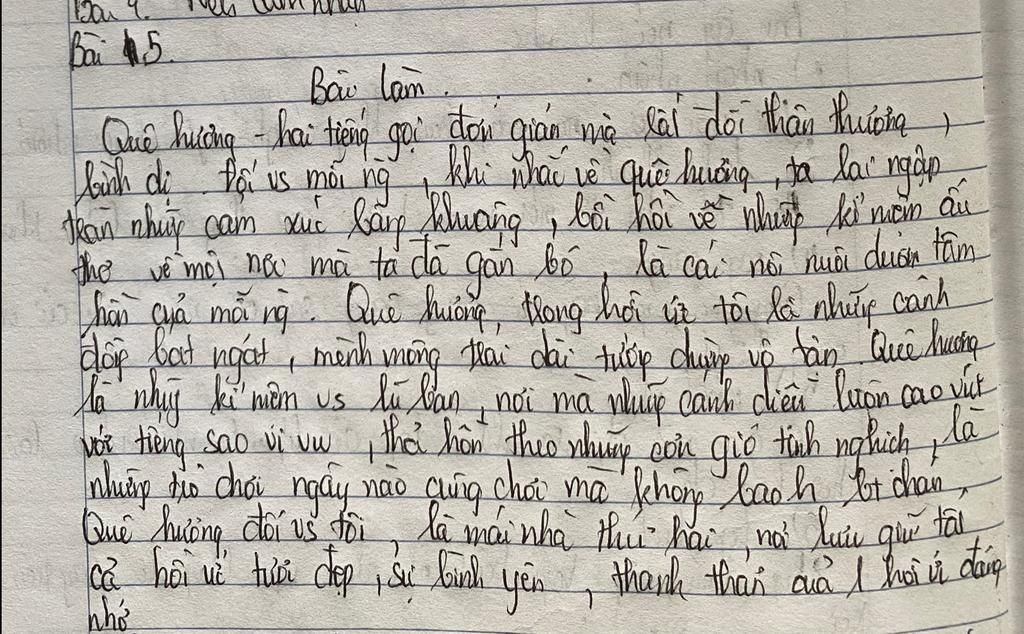 Bài 4. Nêu cảm nhận
Bài 5.
Bài làm.
Quê hương - hai tiếng gọi đơn giản mà rất đỗi thân thương,
bình dị. Đối vs mỗi ng, khi nhắc về quê hương, ta lại ngập
tràn những cảm xúc bâng khuâng, bồi hồi về những kỉ niệm ấu
thơ về mọi nơi mà ta đã gắn bó, là cái nôi nuôi dưỡng tâm
hồn của mỗi ng. Quê hương, trong hồi ức tôi là những cánh
đồng bát ngát, mênh mông trải dài tưởng chừng vô tận. Quê hương
là những kỉ niệm vs lũ bạn, nơi mà những cánh diều lượn cao vút
với tiếng sáo vi vu, thả hồn theo những cơn gió tinh nghịch, là
những trò chơi ngày nào cũng chơi mà không bao h bt chán,
Quê hương đối vs tôi, là mái nhà thứ hai, nơi lưu giữ tất
cả hồi ức tươi đẹp, sự bình yên, thanh thản của 1 hồi ức đáng
nhớ